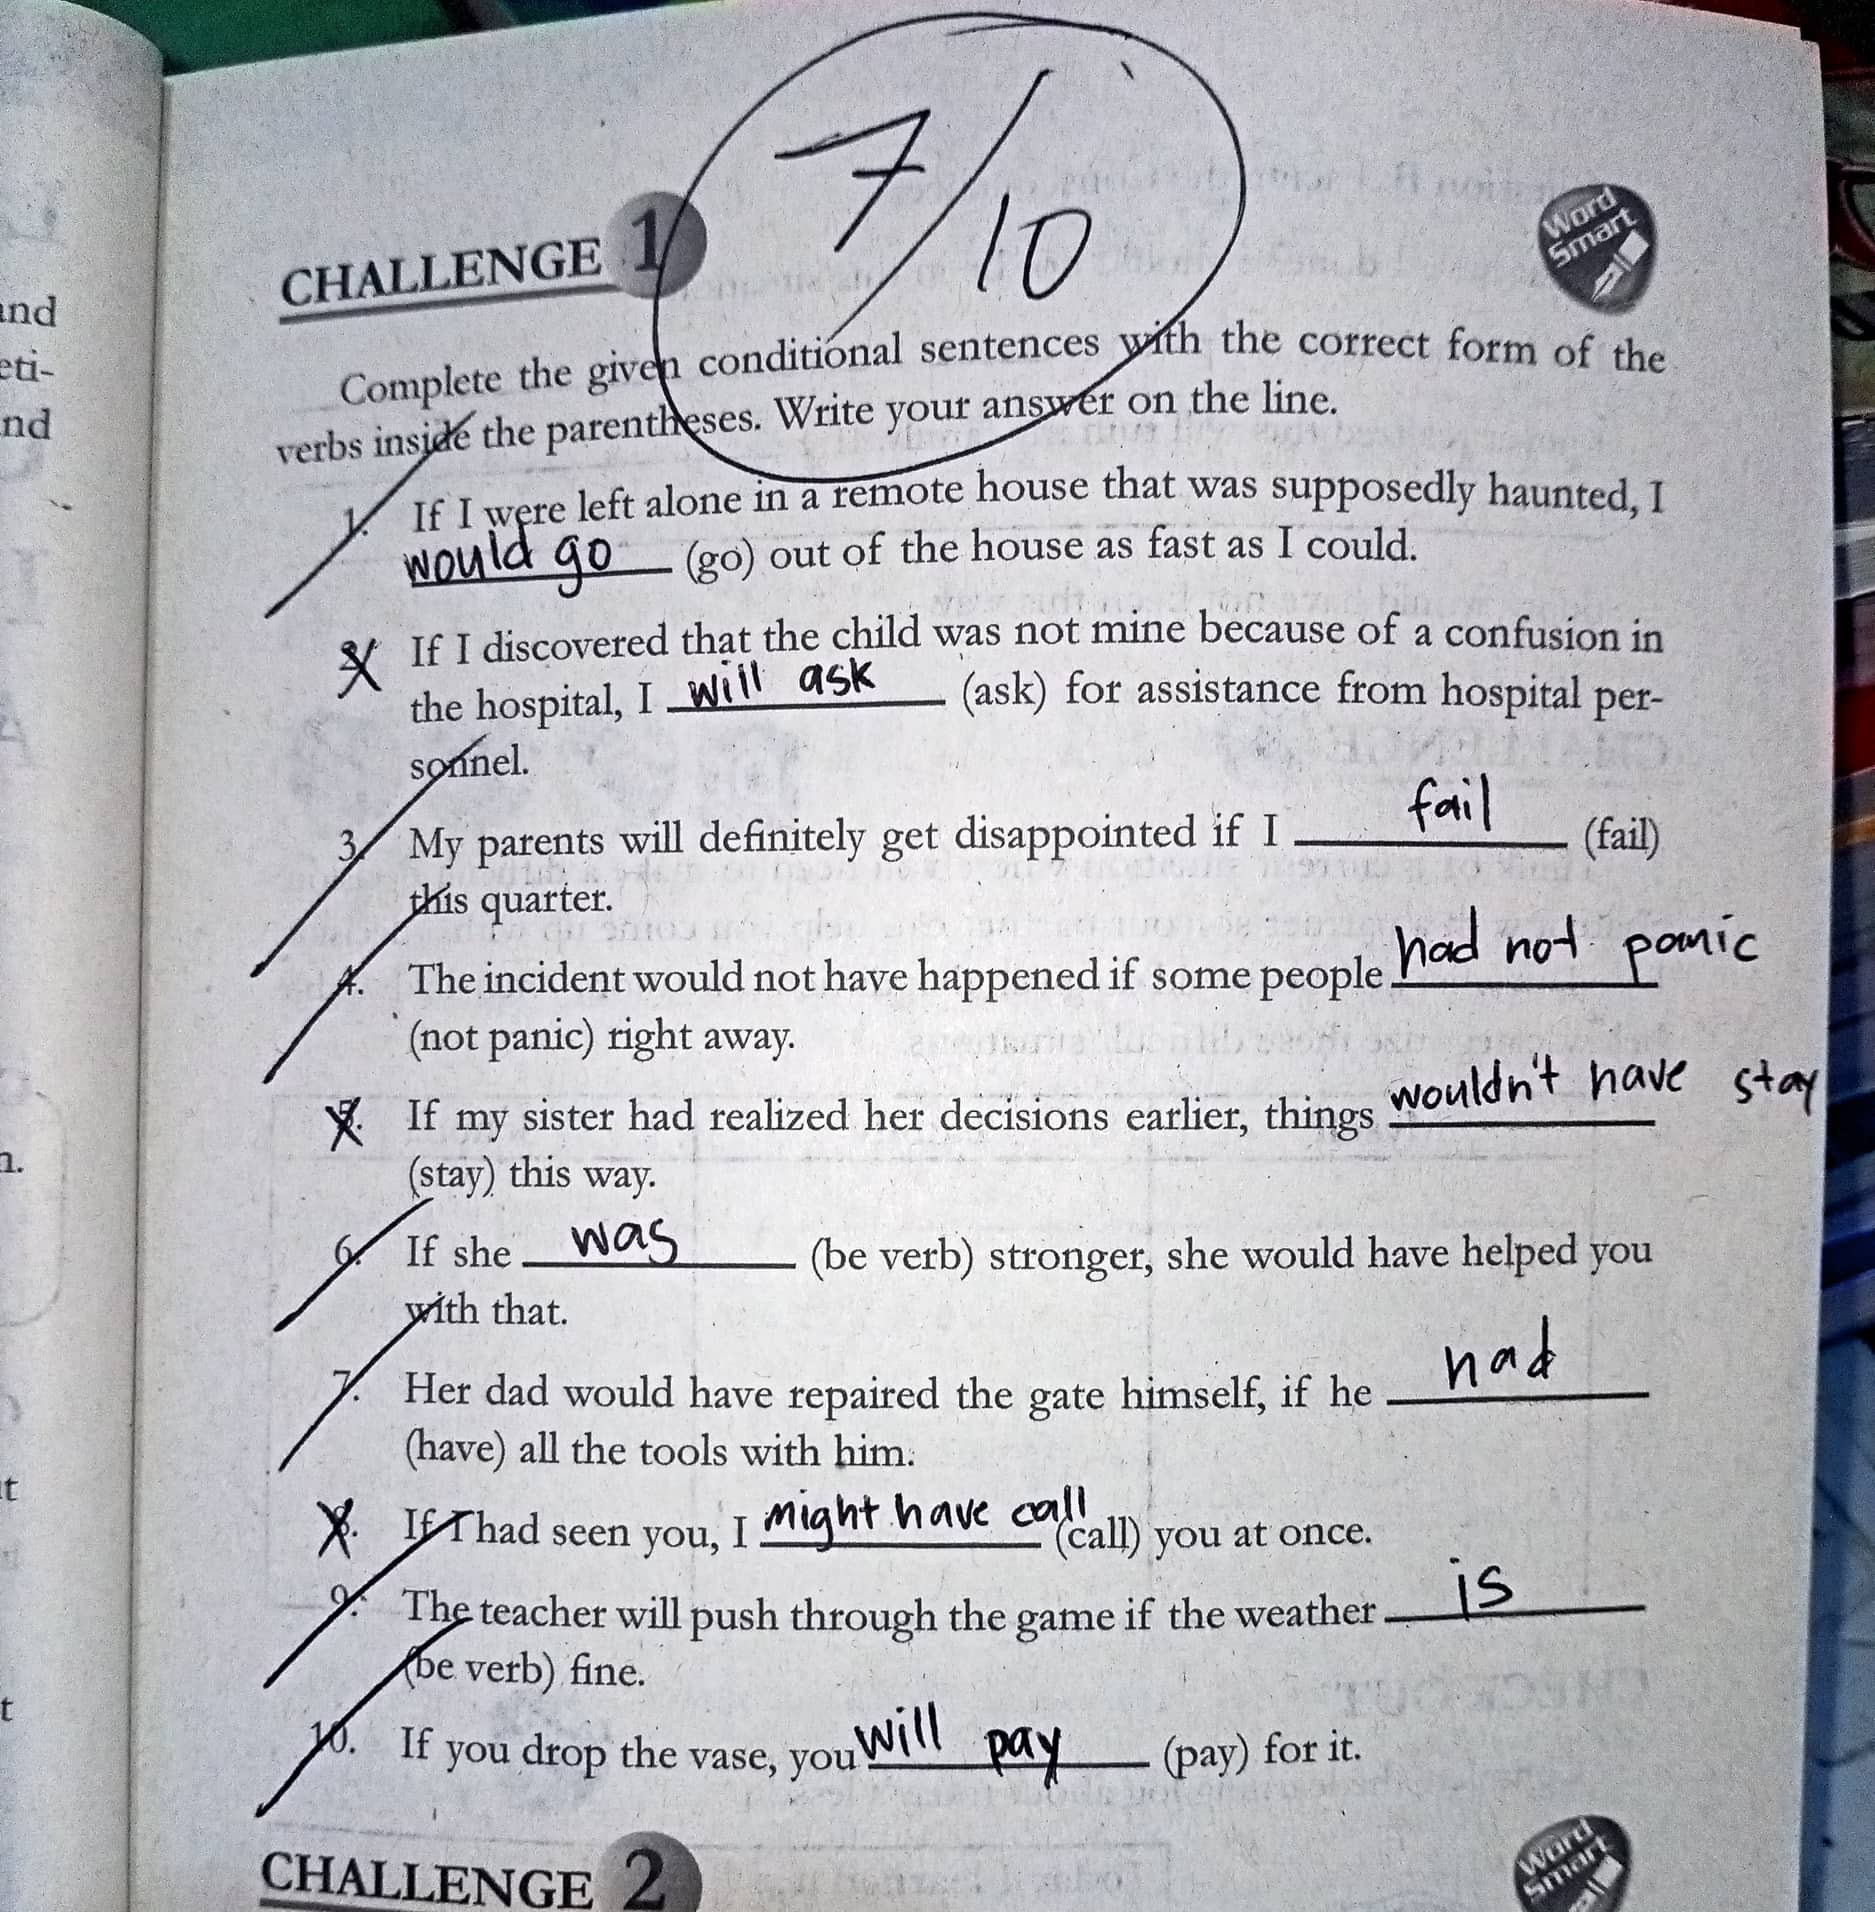 7/10
CHALLENGE 1
Word
Smart
Complete the given conditional sentences with the correct form of the
verbs inside the parentheses. Write your answer on the line.
1. If I were left alone in a remote house that was supposedly haunted, I
would go (go) out of the house as fast as I could.
If I discovered that the child was not mine because of a confusion in
the hospital, I will ask (ask) for assistance from hospital per-
sonnel.
3. My parents will definitely get disappointed if I fail (fail)
this quarter.
4. The incident would not have happened if some people had not panic
(not panic) right away.
If my sister had realized her decisions earlier, things wouldn't have stay
(stay) this way.
6. If she was (be verb) stronger, she would have helped you
with that.
7. Her dad would have repaired the gate himself, if he had
(have) all the tools with him.
If I had seen you, I might have call (call) you at once.
9. The teacher will push through the game if the weather is
(be verb) fine.
10. If you drop the vase, you will pay (pay) for it.
CHALLENGE 2
Word
Smart
and
eti-
nd